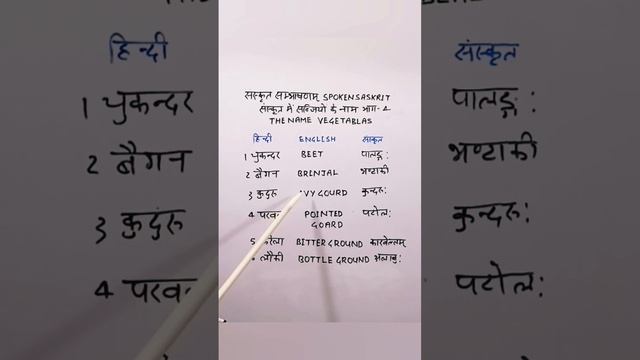 हिन्दी
1 चुकन्दर
2 बैगन
3 कुदुरू
4 परव
संस्कृत सम्भाषणम् SPOKEN SASKRIT
संस्कृत में सब्जियों के नाम भाग-4
THE NAME VEGETABLAS
हिन्दी ENGLISH संस्कृत
1 चुकन्दर BEET पालङ्कः
2 बैगन BRINJAL भण्टाकी
3 कुदुरू IVY GOURD कुन्दरुः
4 परव POINTED GOARD पटोलः
5 BITTER GROUND कारवेल्लम्
लौकी BOTTLE GROUND अलाबुः
संस्कृत
पालङ्कः
भण्टाकी
कुन्दरुः
पटोलः